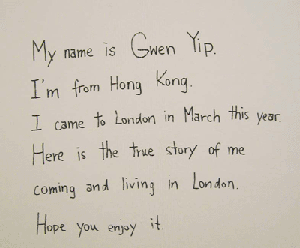 My name is Gwen Yip.
I'm from Hong Kong.
I came to London in March this year.
Here is the true story of me
coming and living in London.
Hope you enjoy it.